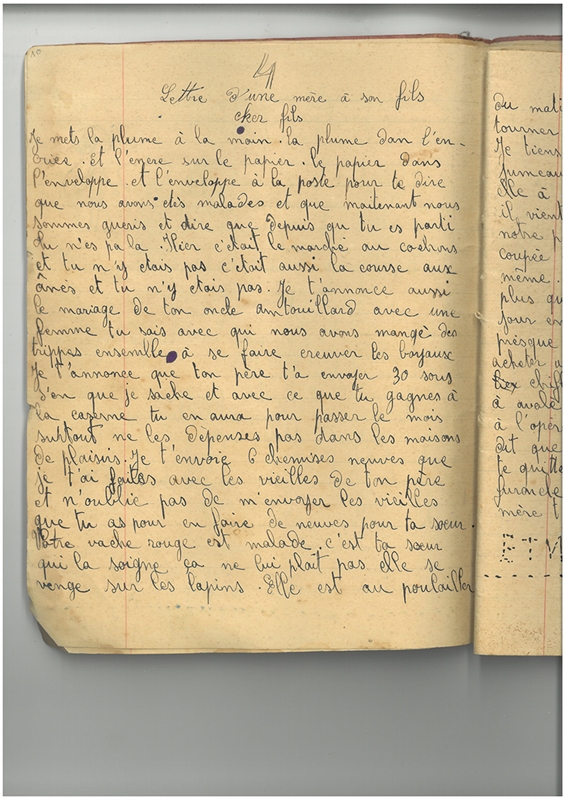 10
4
Lettre d'une mère à son fils
cher fils
Je mets la plume à la main. la plume dan l'en-
crier. et l'encre sur le papier. le papier dans
l'enveloppe. et l'enveloppe à la poste pour te dire
que nous avons étés malades et que maitenant nous
sommes gueris et dire que depuis qu tu es parti
tu n'es pa la. Hier c'etait le marché au cochons
et tu n'y etais pas c'était aussi la course aux
ânes et tu n'y etais pas. Je t'annonce aussi
le mariage de ton oncle antouillard avec une
femme tu sais avec qui nous avons mangé des
trippes ensemble à se faire creuver les boyaux
Je t'annonce que ton père t'a envoyer 30 sous
s'en que je sache et avec ce que tu gagnes à
la cazerne tu en aura pour passer le mois
surtout ne les dépenses pas dans les maisons
de plaisirs. Je t'envoie 6 chemises neuves que
je t'ai faites avec les vieilles de ton père
et n'oublie pas de m'envoyer les vieilles
que tu as pour en faire de neuves pour ta sœur.
Notre vache rouge est malade c'est ta sœur
qui la soigne ça ne lui plait pas elle se
venge sur les lapins. Elle est au poulailler
du mati
tourner
Je tiens
jumeau
elle à
il vient
notre p
coupée
même.
plus qu
jour en
presque
acheter u
chif
à avale
à l'opér
dit que
te quitte
mère t